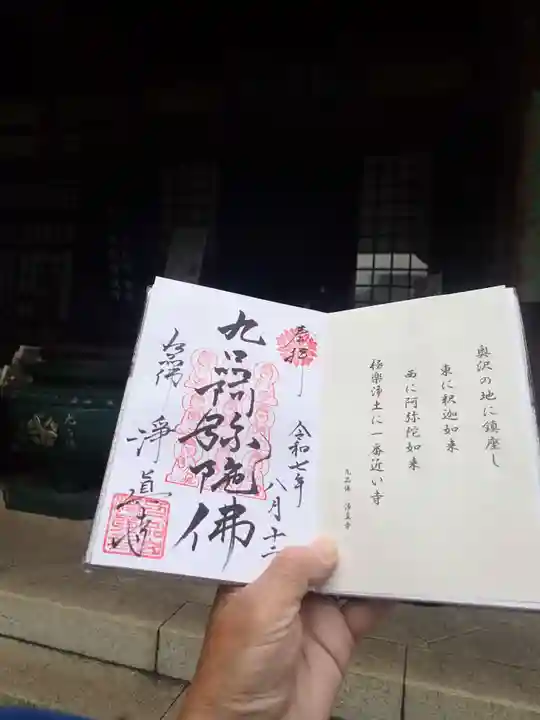 奥沢の地に鎮座し
東に釈迦如来
西に阿弥陀如来
極楽浄土に一番近い寺
九品佛 浄真寺
奉拝
令和七年
八月十二
九品阿弥陀佛
九品佛
淨真寺